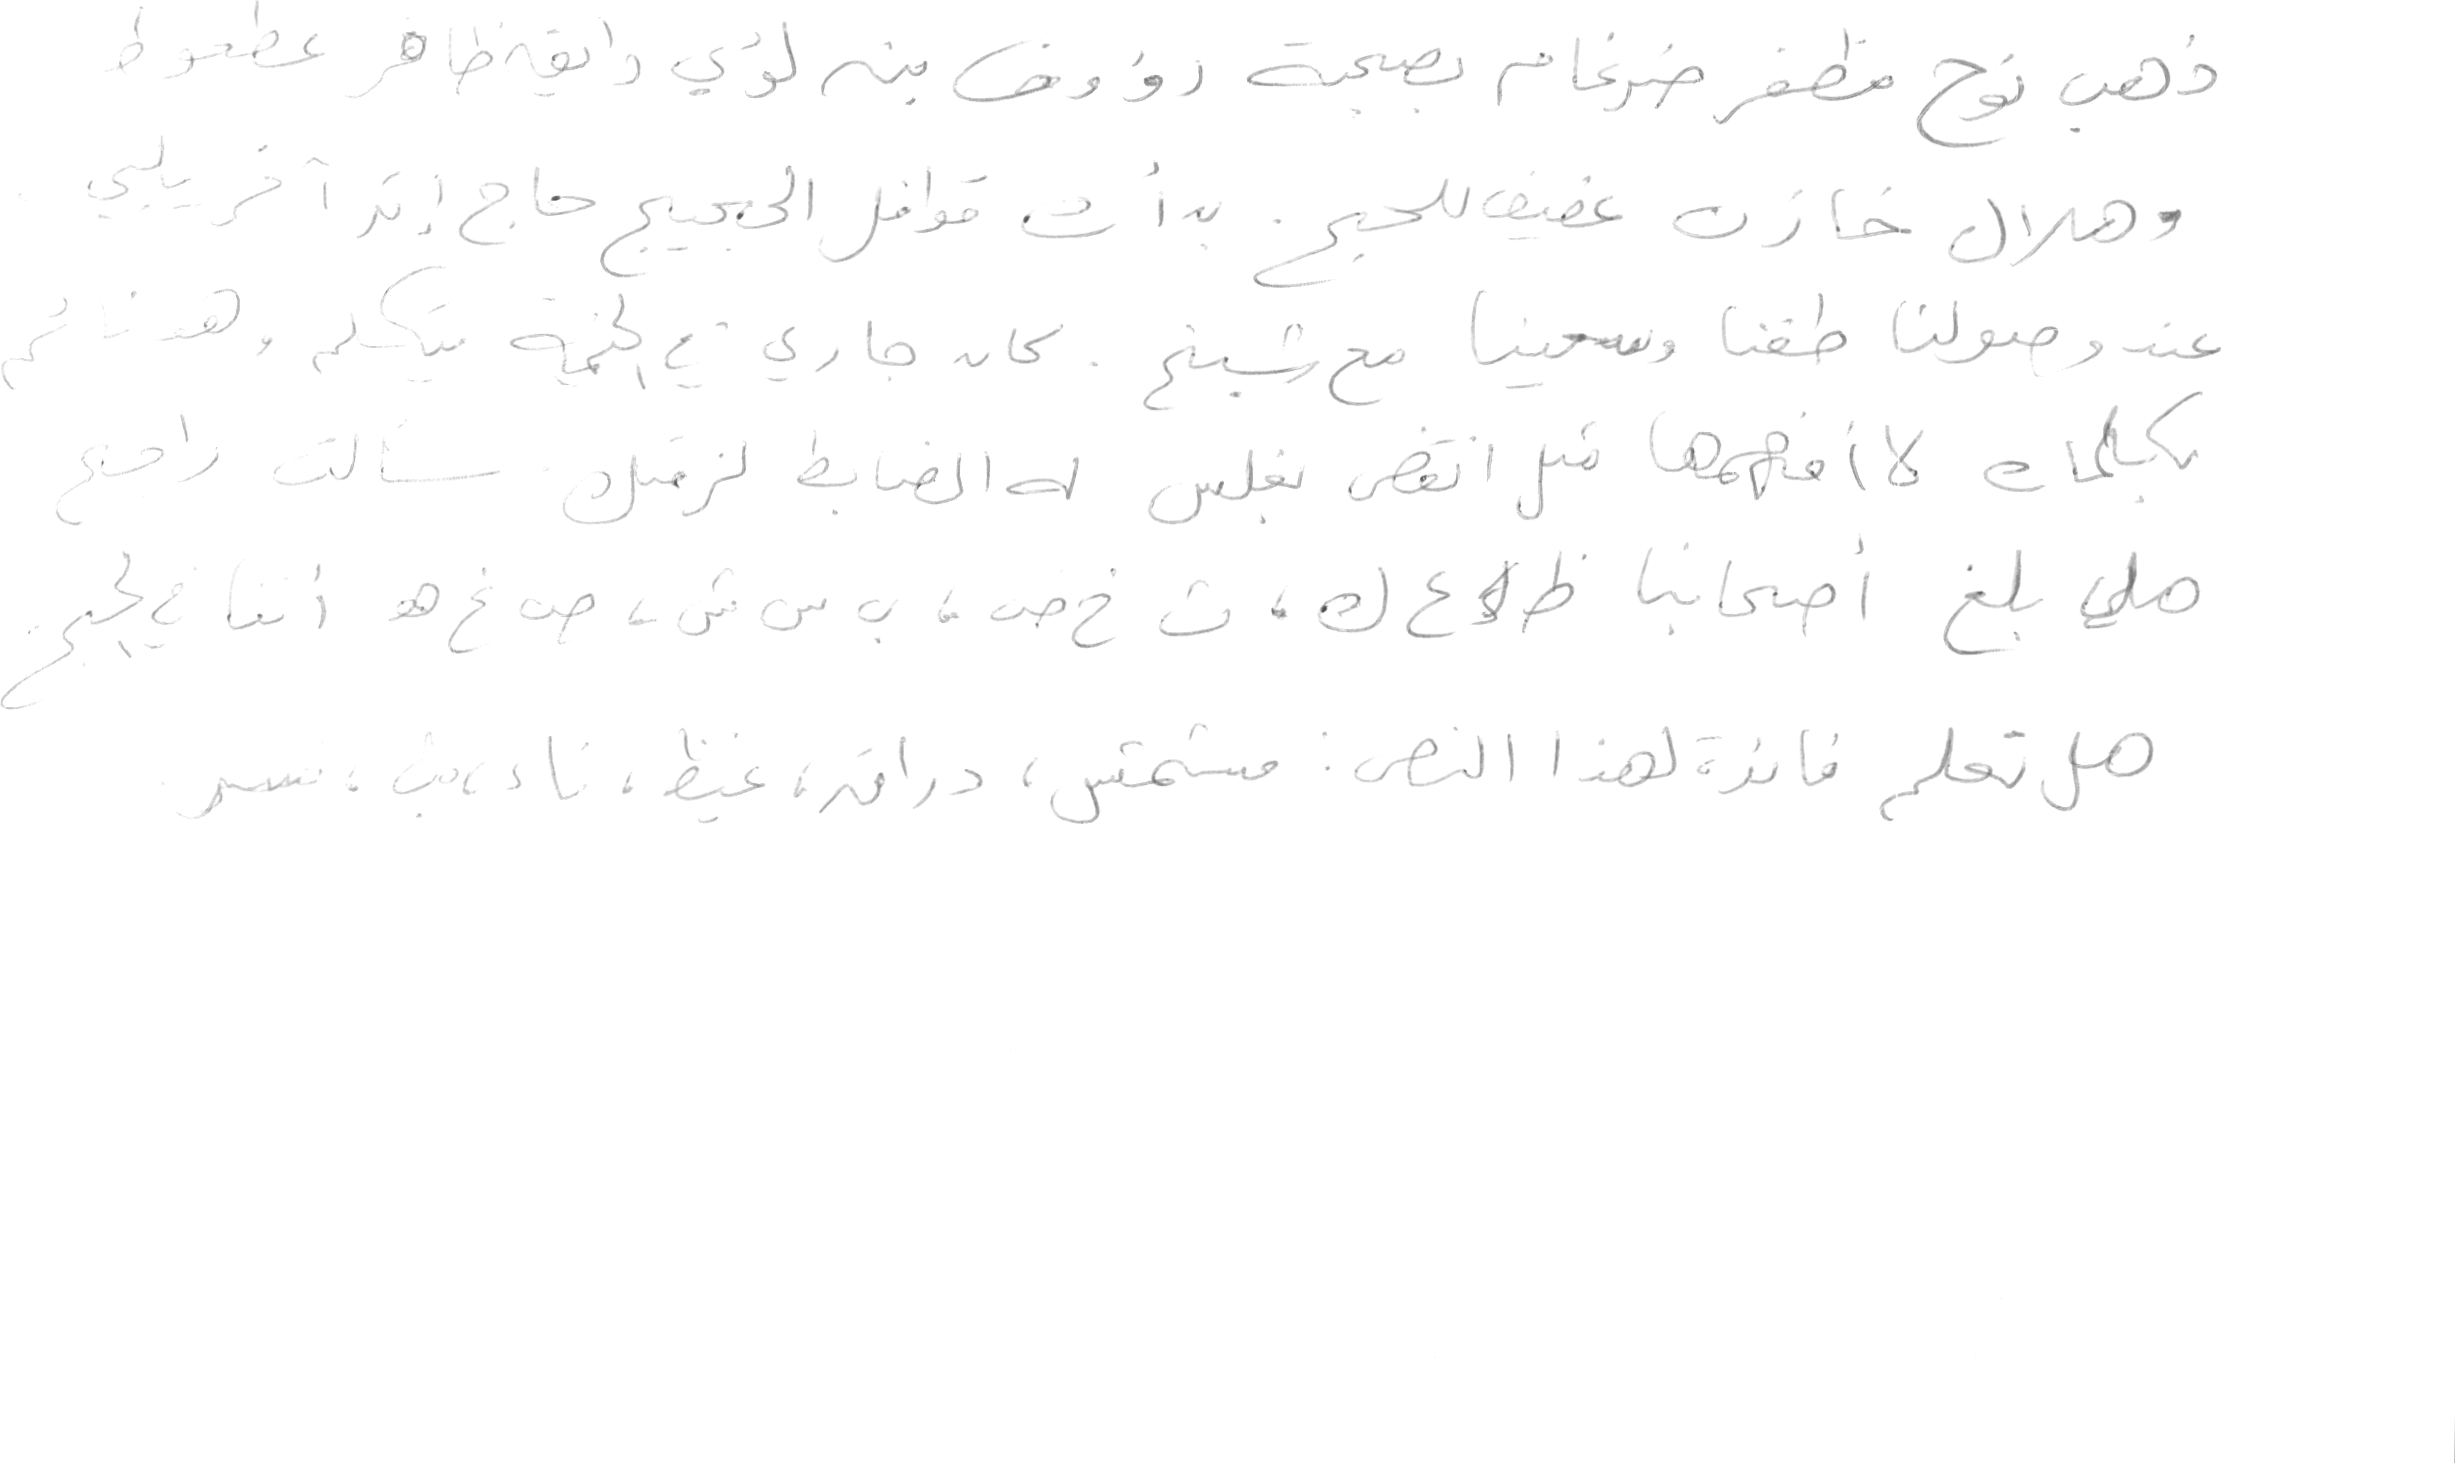 ذهب نوح مظفر ضرغام بصحبت رؤوف بن لؤي رافقه ظافر عطعوط
وهلال خازن غضيف للحج. بدأت قوافل الحجيج حاج إثر آخر يلبي.
عند وصولنا طفنا وسعينا مع شيخ. كان جاري في الخيمة يتكلم وهو نائم
بكلمات لا أفهمها مثل انقض بغلس ك الضابط لزميل. سألت راجح
هل بلغ أصحابنا ظ لا ع ك، ث خ ض، ب س ش، ص غ ه أثناء الحج.
هل تعلم فائدة لهذا النص: مشمش، دراق، غيظ، ناد،